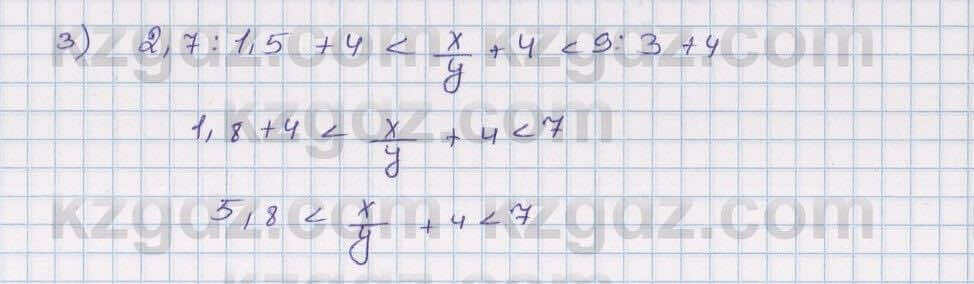 3) 2,7 : 1,5 + 4 < x/y + 4 < 9 : 3 + 4
1,8 + 4 < x/y + 4 < 7
5,8 < x/y + 4 < 7
kzgdz.com kzgdz.com
kzgdz.com
kzgdz.com kzgdz.com
kzgdz.com